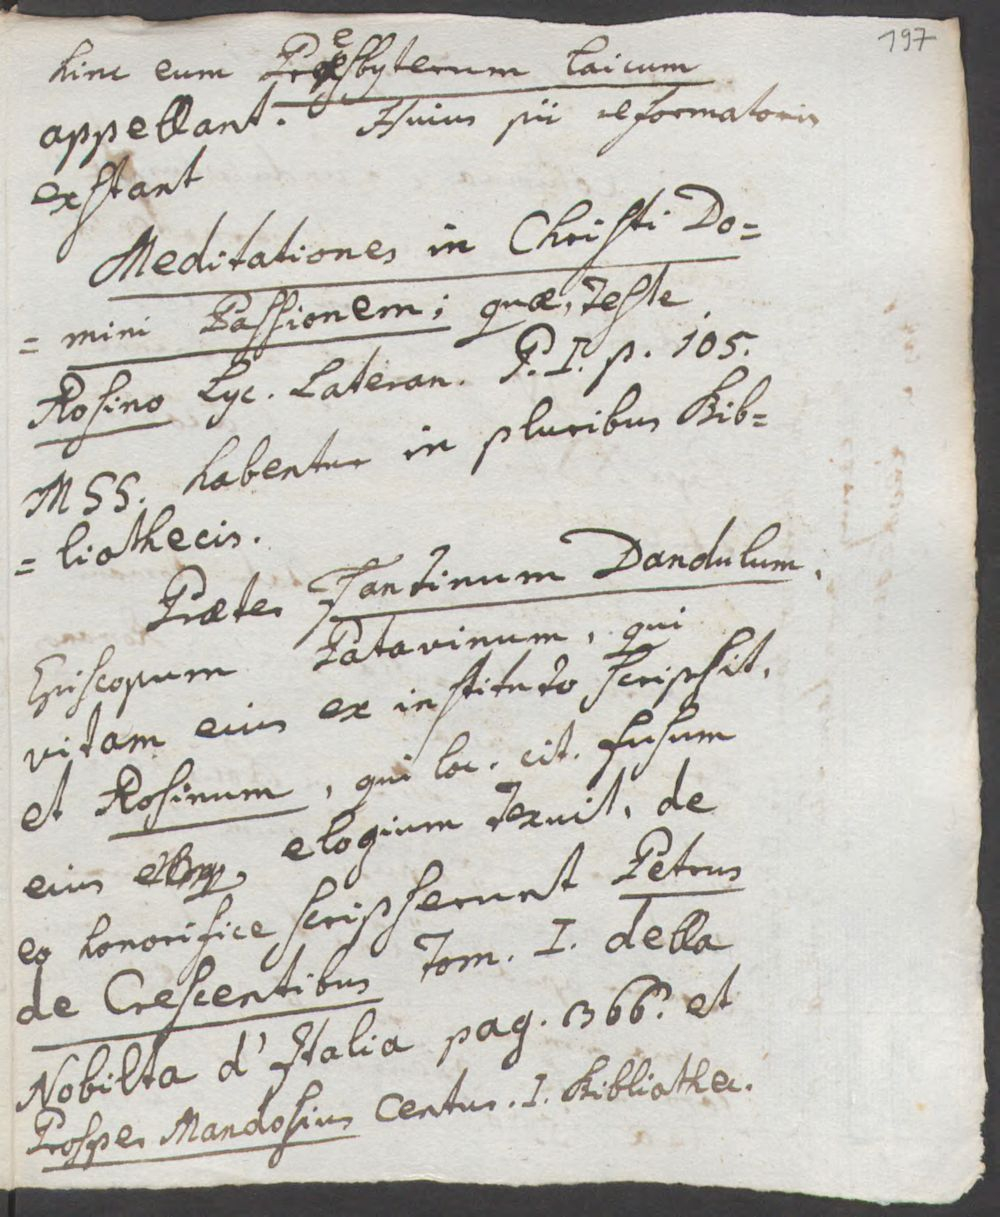 197
hinc eum Presbyterum laicum
appellant. Huius pii reformatoris
exstant
Meditationes in Christi Do=
= mini Passionem; quæ, teste
Rosino Lyc. Lateran. P. I. p. 105.
MSS. habentur in pluribus Bib=
= liothecis.
Præter Fantinum Dandulum,
Episcopum Patavinum, qui
vitam eius ex instituto scripsit,
et Rosinum, qui loc. cit. fusum
eius elogium texuit, de
eo honorifice scripserunt Petrus
de Crescentibus Tom. I. della
Nobilta d'Italia pag. 366. et
Prosper Mandosius Centur. I. Bibliothec.